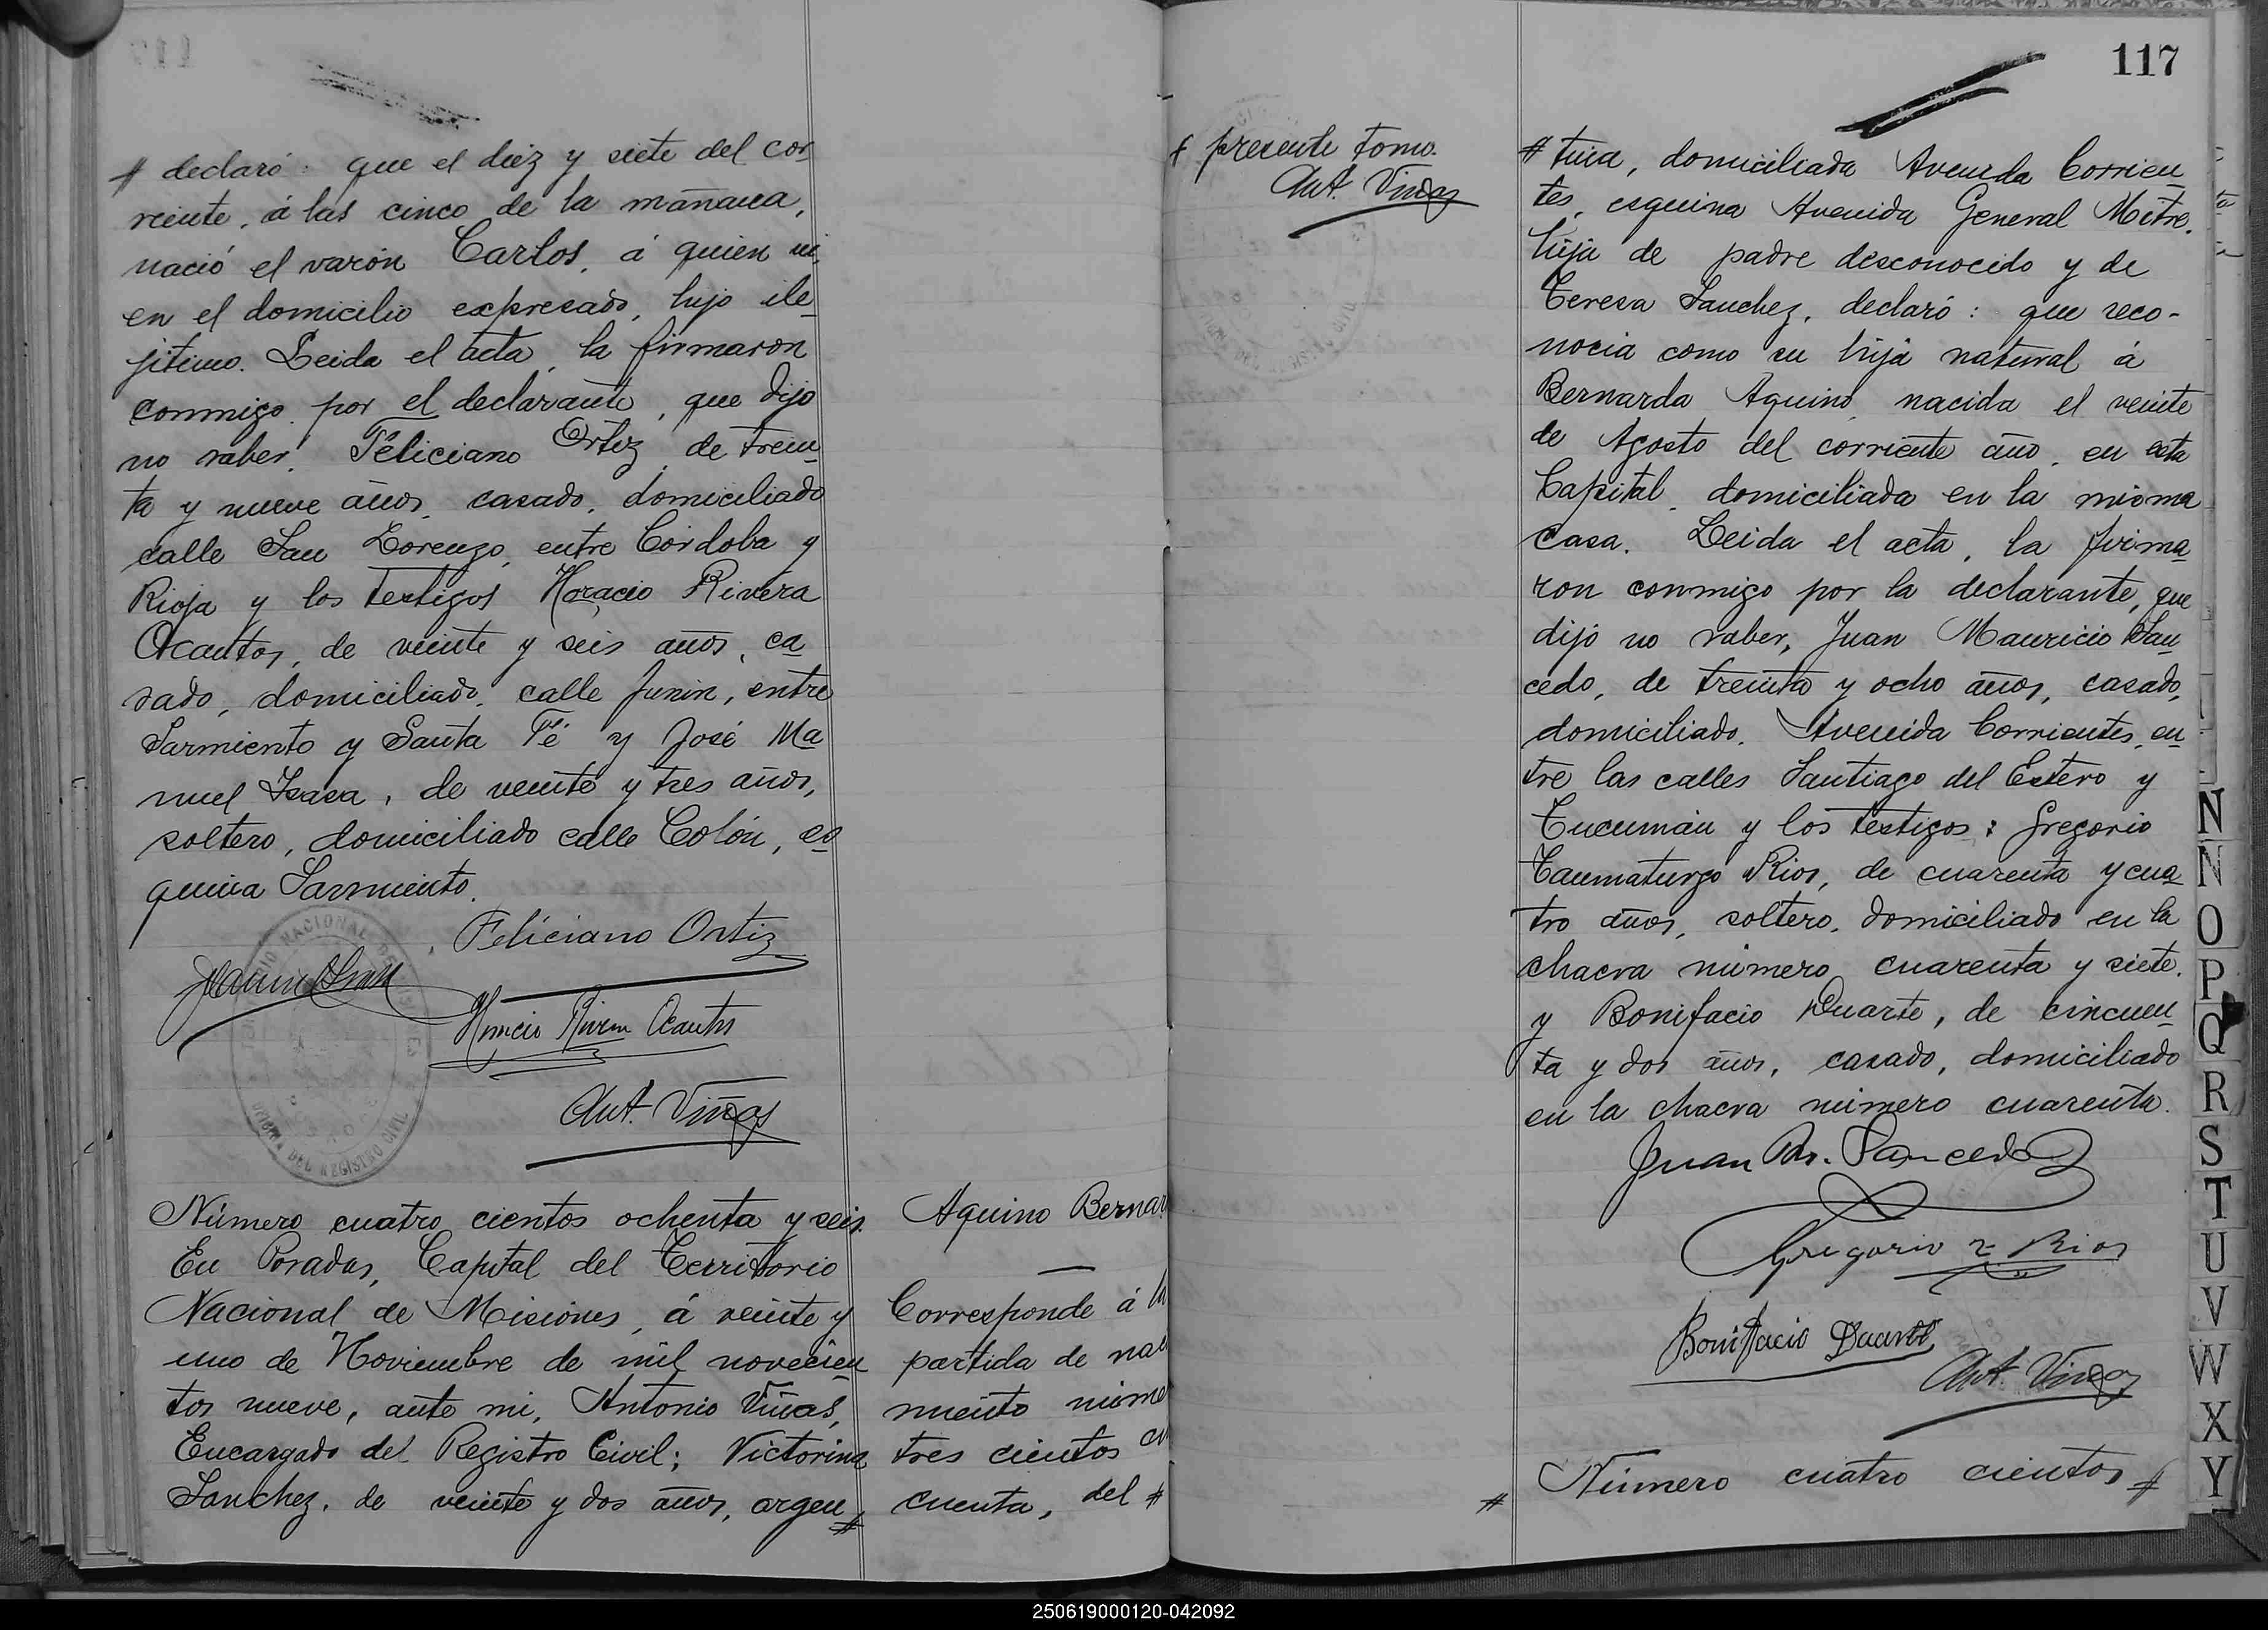 # declaró: que el diez y siete del cor
riente, á las cinco de la mañana,
nació el varón Carlos, á quien vi,
en el domicilio expresado, hijo ile
jítimo. Leida el acta, la firmaron
conmigo por el declarante, que dijo
no saber, Feliciano Ortiz, de trein
ta y nueve años, casado, domiciliado
calle San Lorenzo, entre Córdoba y
Rioja y los testigos Horacio Rivera
Ocantos, de veinte y seis años, ca
sado, domiciliado, calle Junin, entre
Sarmiento y Santa Fé y José Ma
nuel Isasa, de veinte y tres años,
soltero, domiciliado calle Colón, es
quina Sarmiento.
Feliciano Ortiz
Horacio Rivera Ocantos
Ant. Viñas
DEL REGISTRO CIVIL
Número cuatro cientos ochenta y seis.
En Posadas, Capital del Territorio
Nacional de Misiones, á veinte y
uno de Noviembre de mil novecien
tos nueve, ante mi, Antonio Viñas,
Encargado del Registro Civil; Victorina
Sanchez, de veinte y dos años, argen #
Aquino Bernar
Corresponde á la
partida de naci
miento núme
tres cientos
cuenta, del #
# presente tomo.
Ant. Viñas
117
# tina, domiciliada Avenida Corrien
tes, esquina Avenida General Mitre,
hija de padre desconocido y de
Teresa Sanchez, declaró: que reco-
nocia como su hija natural á
Bernarda Aquino, nacida el veinte
de Agosto del corriente año, en esta
Capital, domiciliada en la misma
casa. Leida el acta, la firma
ron conmigo por la declarante, que
dijo no saber, Juan Mauricio Sau
cedo, de treinta y ocho años, casado,
domiciliado, Avenida Corrientes, en
tre las calles Santiago del Estero y
Tucumán y los testigos: Gregorio
Taumaturgo Rios, de cuarenta y cua
tro años, soltero, domiciliado en la
chacra número cuarenta y siete,
y Bonifacio Duarte, de cincuen
ta y dos años, casado, domiciliado
en la chacra número cuarenta.
Juan M. Saucedo
Gregorio T. Rios
Bonifacio Duarte
Ant. Viñas
# Número cuatro cientos #
N
N
O
P
Q
R
S
T
U
V
W
X
Y
250619000120-042092